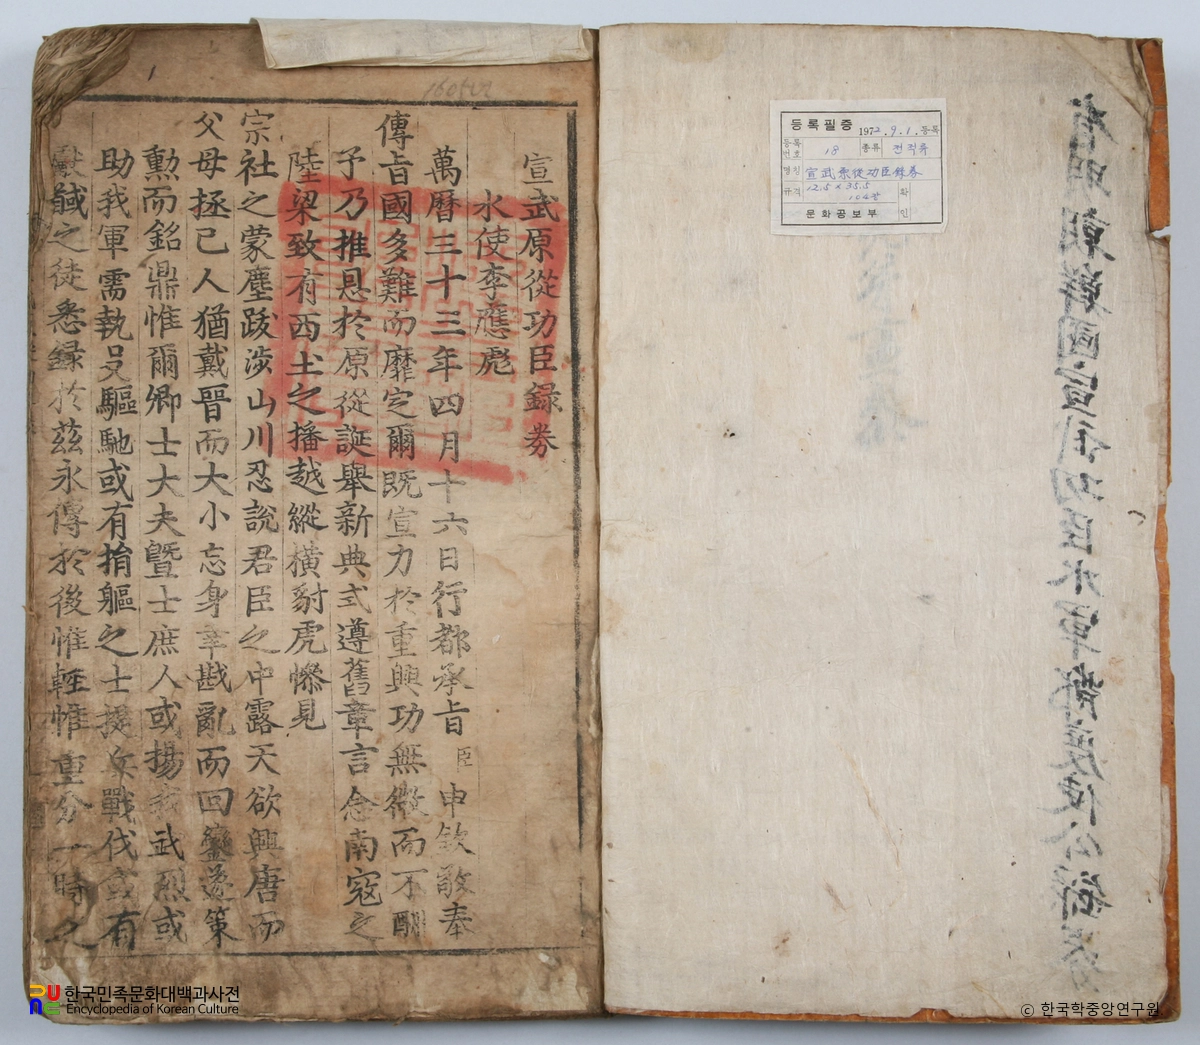 宣武原從功臣錄券
水使李應彪
萬曆三十三年四月十六日行都承旨臣申欽敬奉
傳旨國多難而靡定爾旣宣力於重興功無微而不酬
予乃推恩於原從誕擧新典式遵舊章言念南寇之
陸梁致有西土之播越縱橫豺虎慘見
宗社之蒙塵跋涉山川忍說君臣之中露天欲興唐而
父母拯己人猶戴晉而大小忘身幸戡亂而回鑾遂策
勳而銘鼎惟爾卿士大夫曁士庶人或揚我武烈或
助我軍需執殳驅馳或有捐軀之士提兵戰伐或有
獻馘之徒悉錄於玆永傳於後惟輕惟重分一時之
1
160522
등록필증
1972.9.1.등록
등록번호 18 종류 전적류
명칭 宣武原從功臣錄券
규격 12.5 x 35.5
104장
확인
문화공보부
有明朝鮮國宣武功臣水軍節度使公錄券
한국민족문화대백과사전
Encyclopedia of Korean Culture
© 한국학중앙연구원